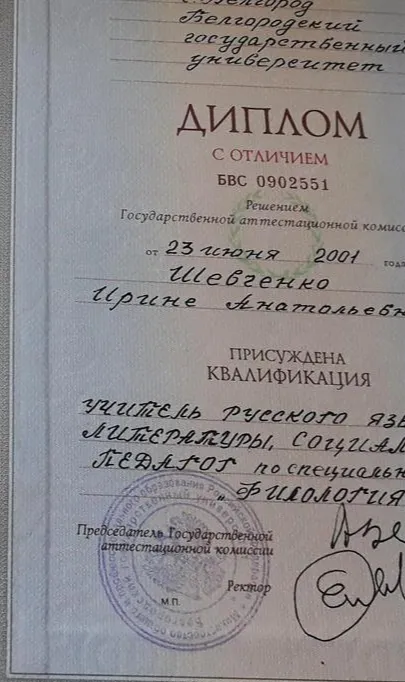 г. Белгород
Белгородский
государственный
университет
ДИПЛОМ
С ОТЛИЧИЕМ
БВС 0902551
Решением
Государственной аттестационной комисс
от 23 июня 2001 года
Шевченко
Ирине Анатольевн
ПРИСУЖДЕНА
КВАЛИФИКАЦИЯ
УЧИТЕЛЬ РУССКОГО ЯЗЫ
ЛИТЕРАТУРЫ, СОЦИАЛ
ПЕДАГОГ по специальн
„ФИЛОЛОГИЯ
Председатель Государственной
аттестационной комиссии
Ректор
М.П.